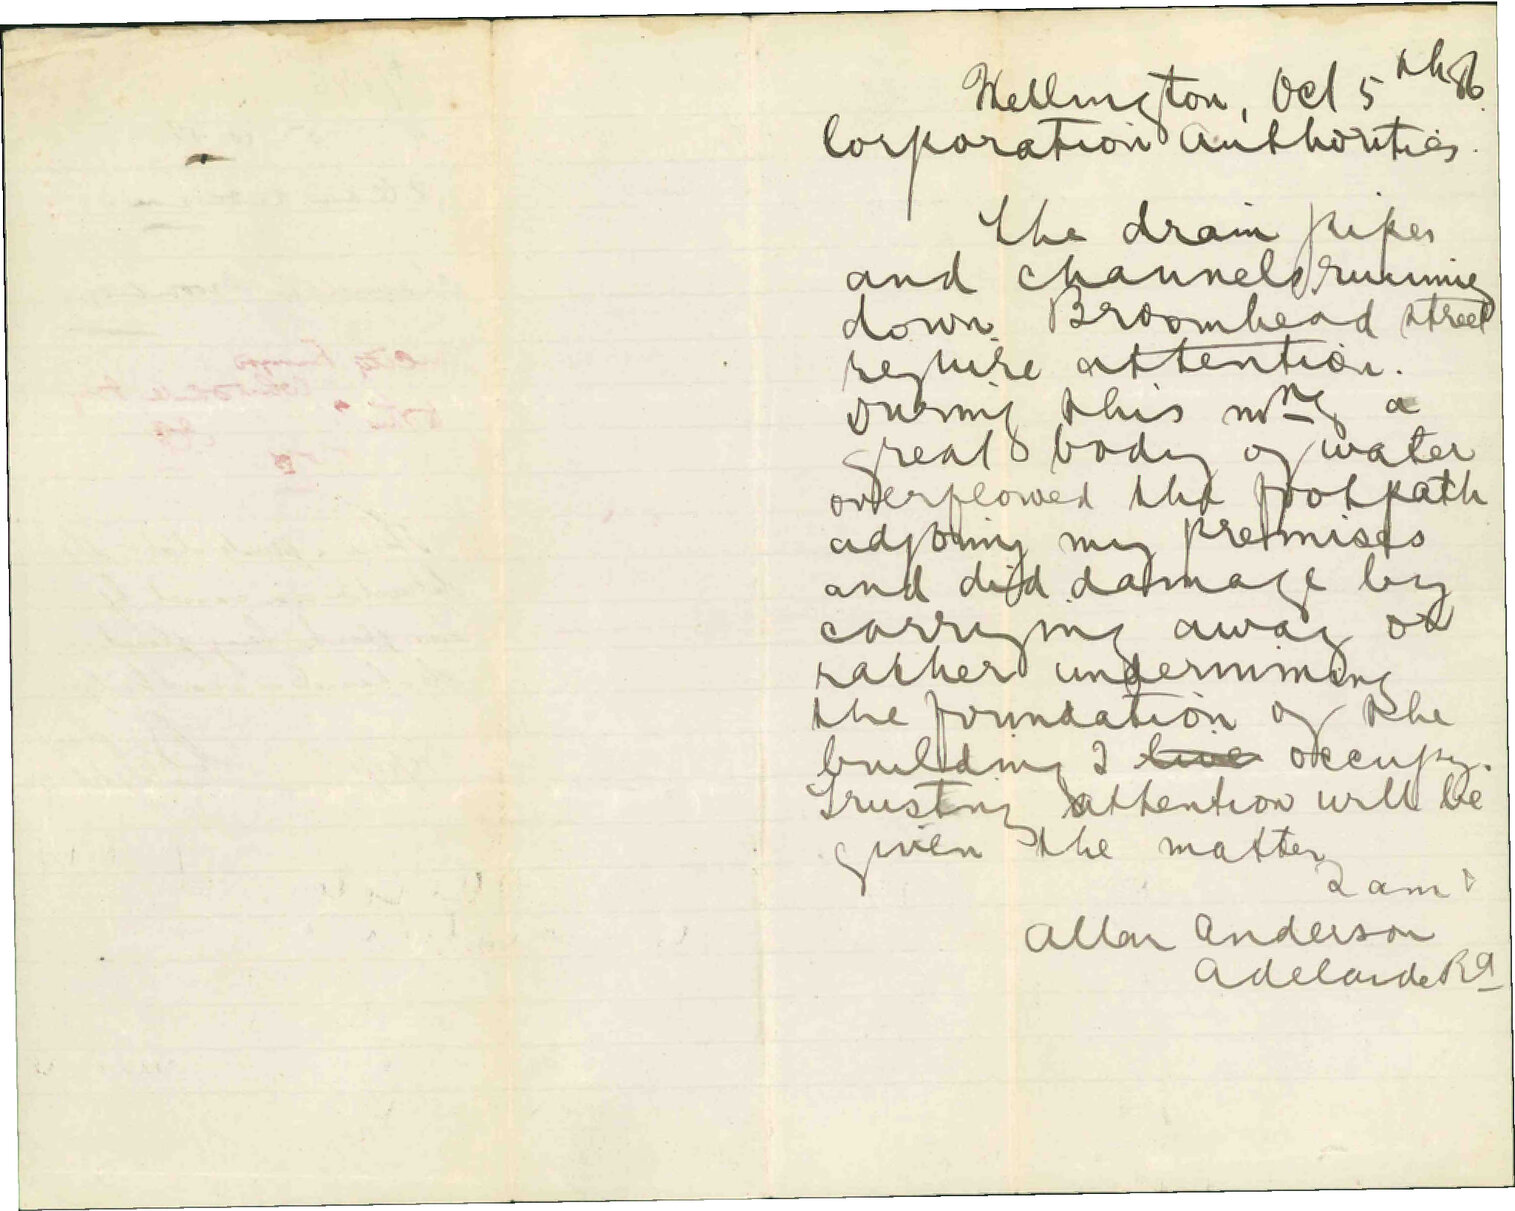 Wellington, Oct 5th 96.
Corporation Authorities.
The drain pipes
and channels running
down Broomhead street
require attention.
During this mng a
great body of water
overflowed the footpath
adjoing my premises
and did damage by
carrying away or
rather undermining
the foundation of the
building I live occupy.
Trusting attention will be
given the matter
I am
Allan Anderson
Adelaide Rd